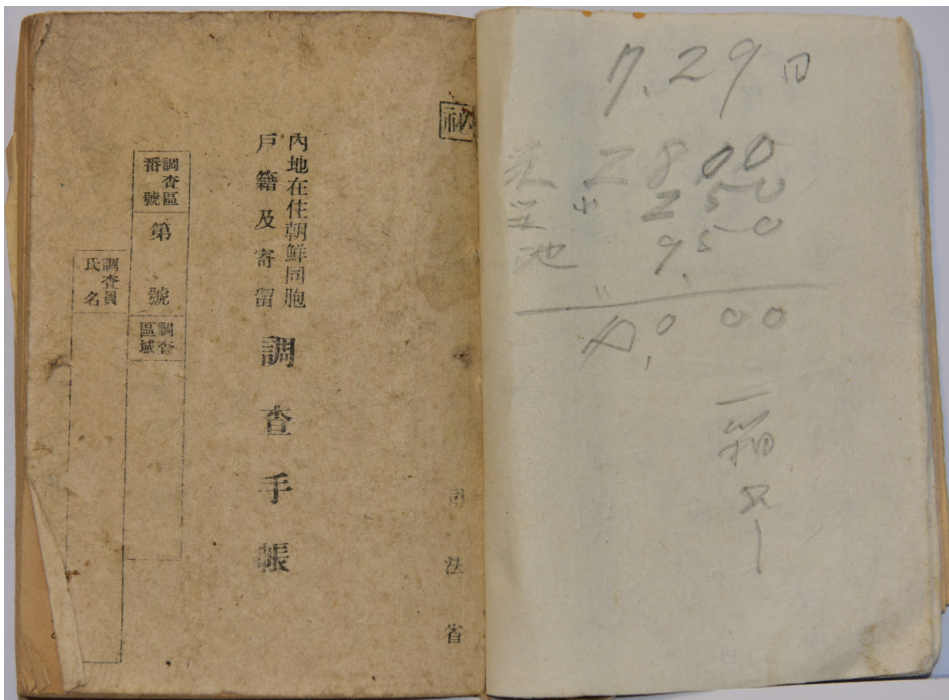 秘
司法省
内地在住朝鮮同胞
戶籍及寄留
調查手帳
調查區
番號
第 號
調查
區域
調查員
氏名
7.29日
2800
250
地 950
00
一箱